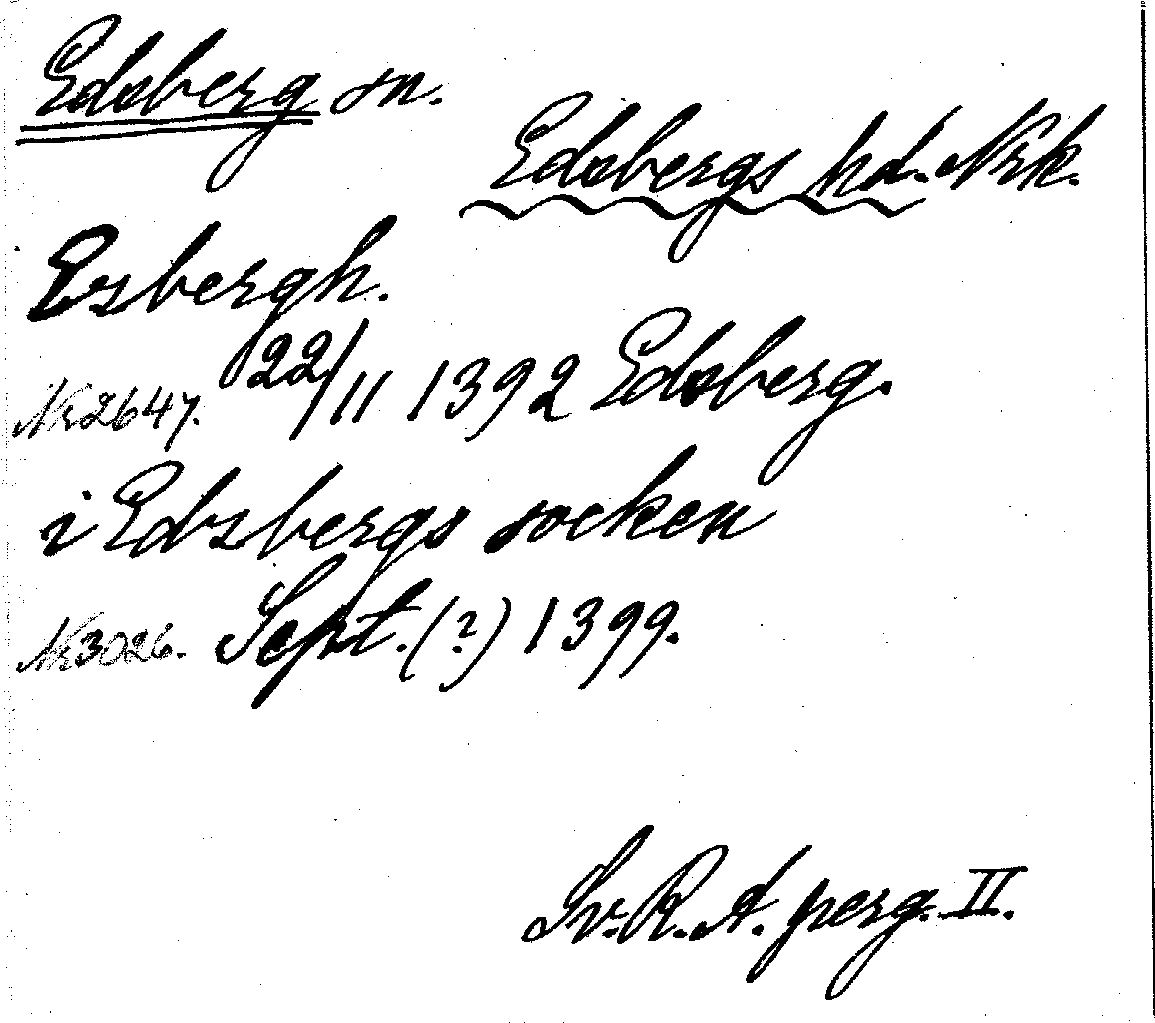 Edsberg sn.
Edsbergs hd. Nrk.
Ezbergh.
Nr 2647. 22/11 1392 Edsberg.
i Edzbergs socken
Nr 3026. Sept. (?) 1399.
Sv. R. A. perg. II.